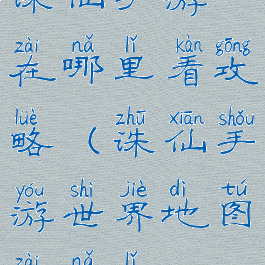 诛仙手游
zài nǎ lǐ kàn gōng
在哪里看攻
lüè zhū xiān shǒu
略（诛仙手
yóu shì jiè dì tú
游世界地图
zài nǎ lǐ